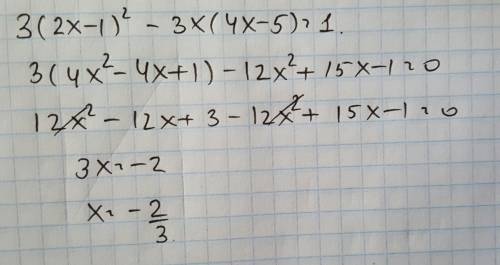 3(2x-1)² - 3x(4x-5) = 1.
3(4x²-4x+1) - 12x² + 15x - 1 = 0
12x² - 12x + 3 - 12x² + 15x - 1 = 0
3x = -2
x = -2/3.